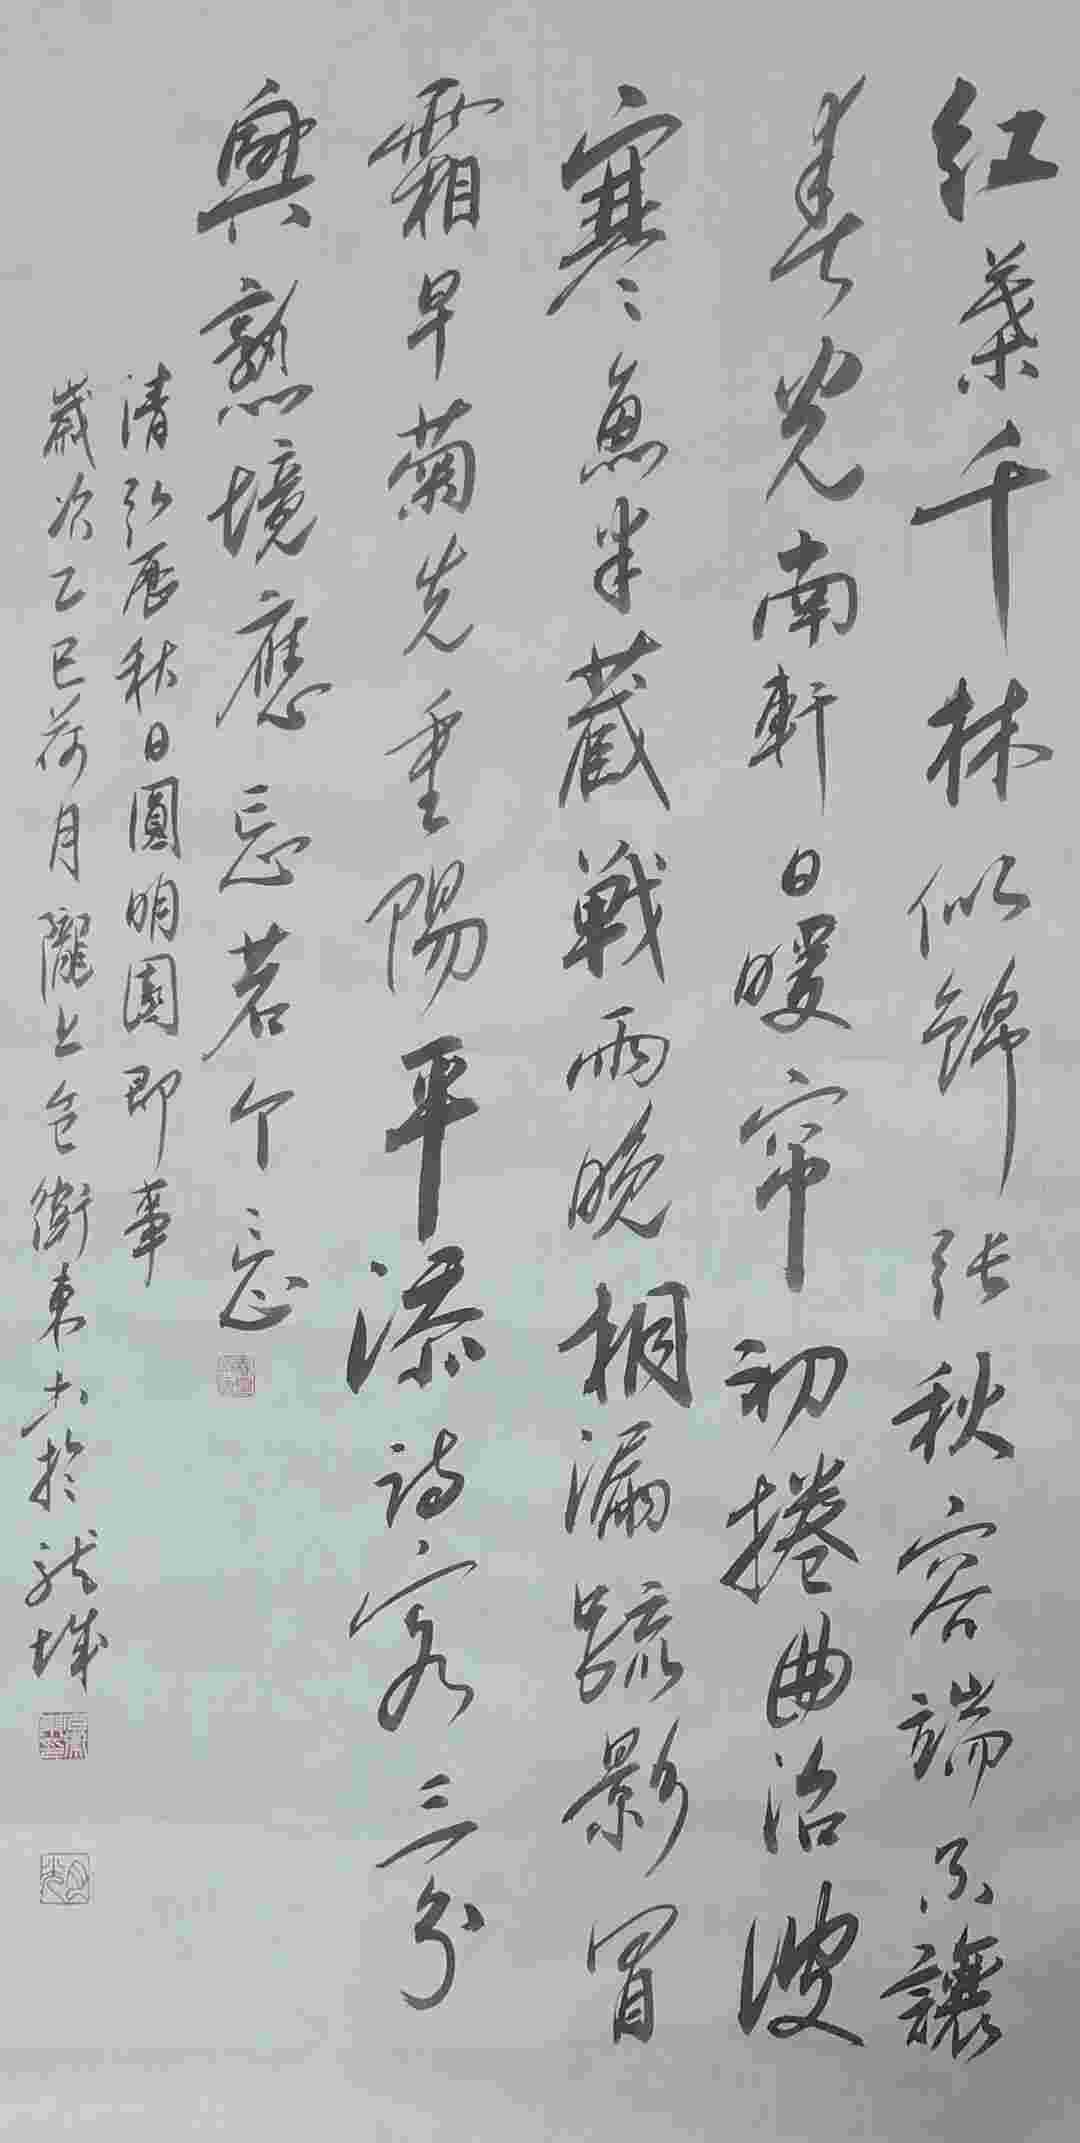 紅葉千林似錦张秋容端不讓
春光南軒日暖帘初捲曲沼波
寒魚半蔵戰雨晚桐漏疏影冒
霜早菊先重陽平添詩客三分
興熟境應忘若个忘
清弘历秋日圓明園即事
歲次乙巳荷月隴上仓街東士於龙城